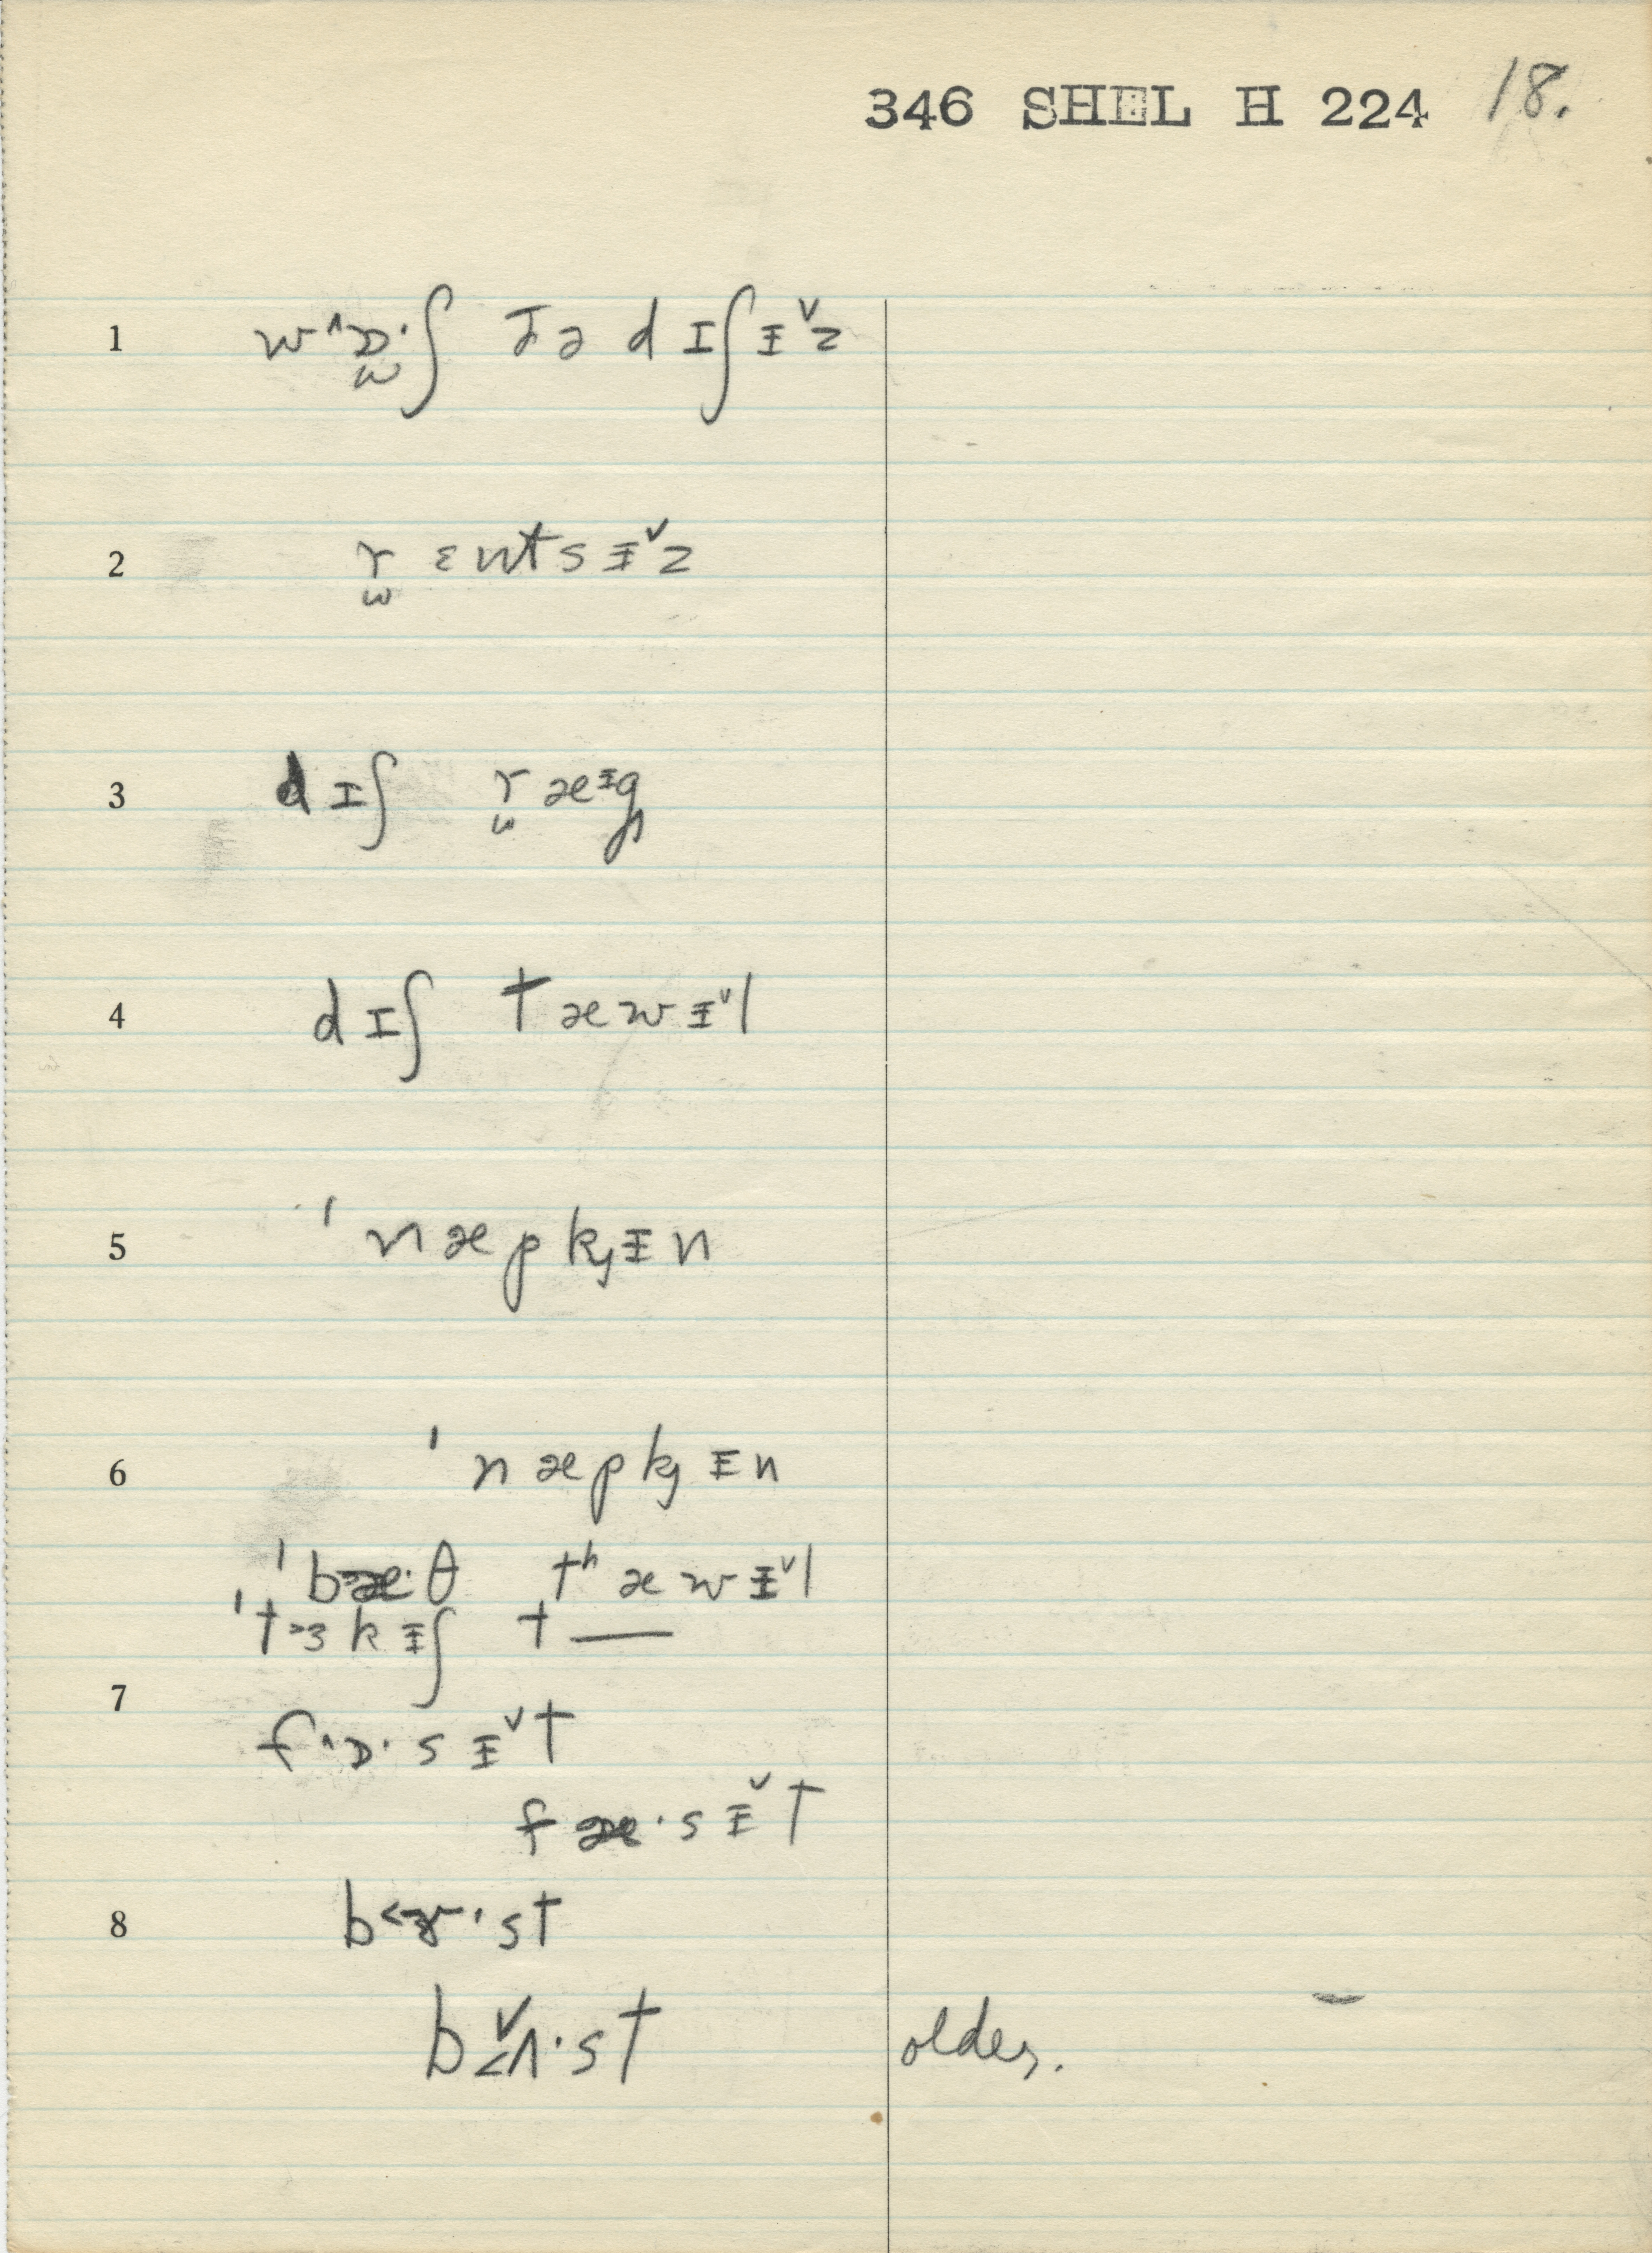 346 SHEL H 224 18.
1 w˄ɒ̫·ʃ ðə dɪʃɪ̵ˇz
2 r̫ ɛntsɪ̵ˇz
3 dɪʃ r̫æɪ̵g̭
4 dɪʃ tæwɪ̵ˇl
5 ˈnæpkɪ̵n
6 ˈnæpkɪ̵n
ˈbæ·θ tʰæwɪ̵ˇl
ˈt˃ɜkɪ̵ʃ t—
7
f˄ɒ·sɪ̵ˇt
fæ·sɪ̵ˇt
8 b˂ɚ·st
b˂ʌˇ·st older.